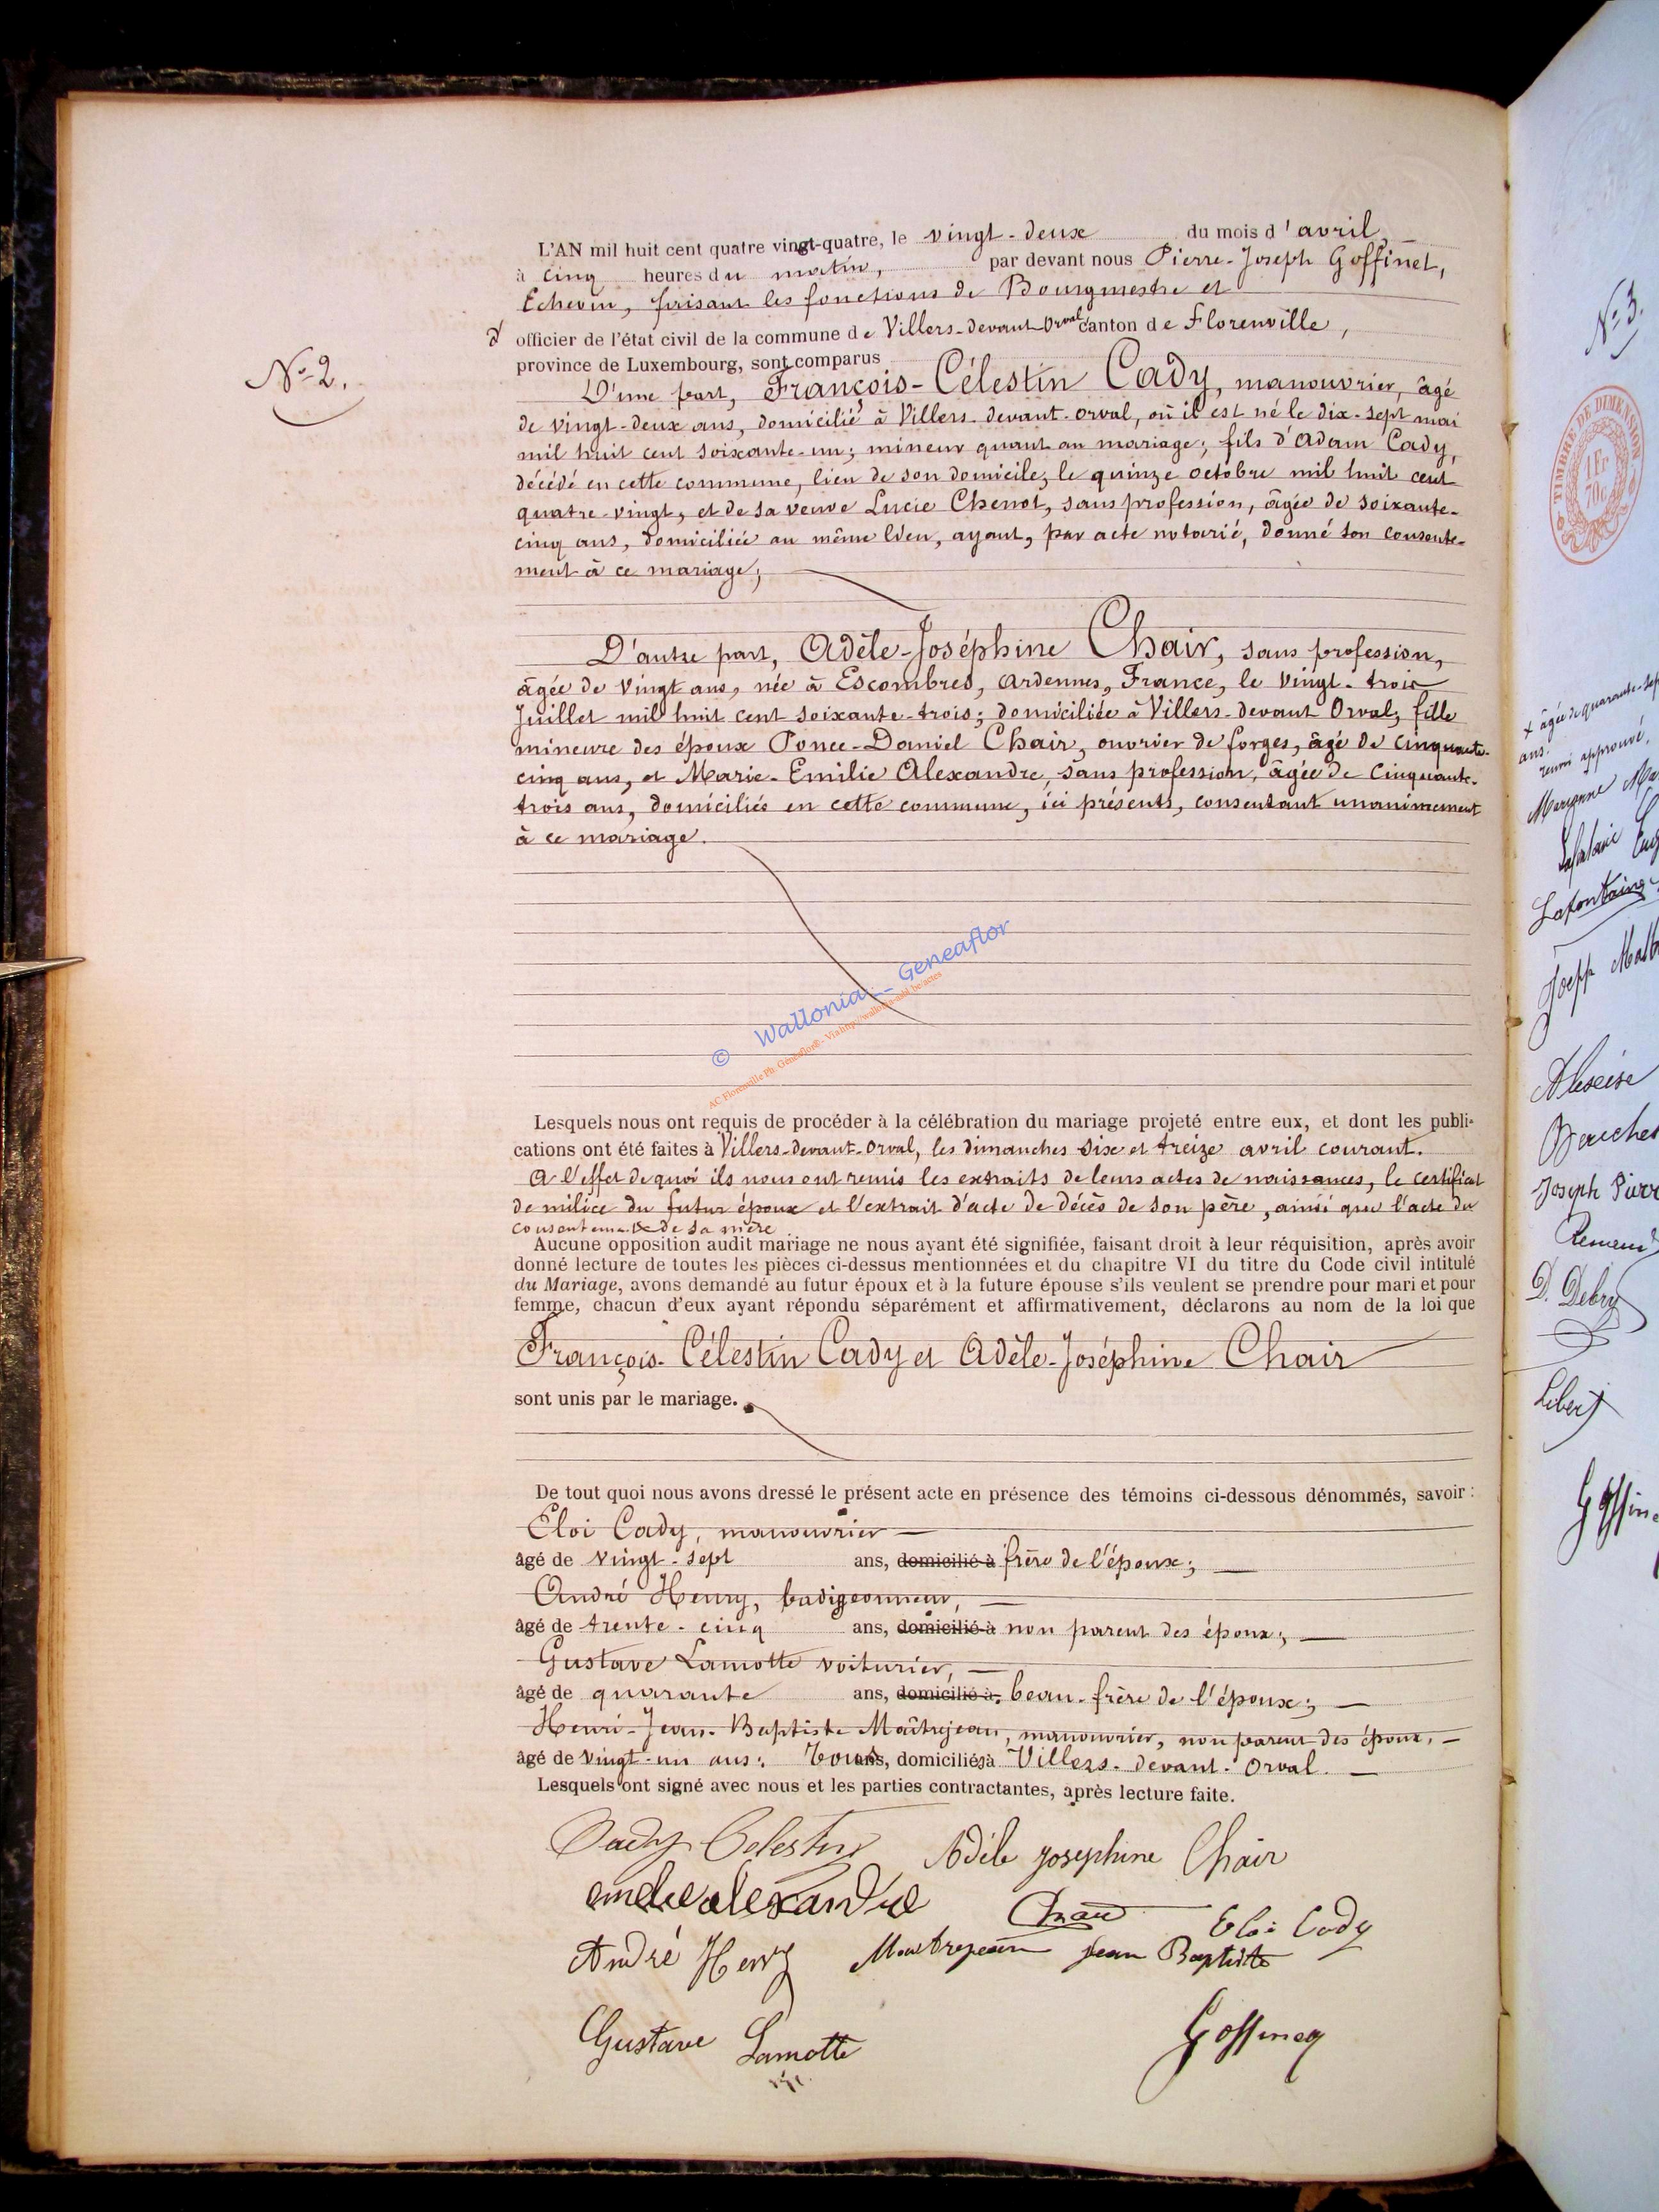 N° 2.
L'AN mil huit cent quatre vingt-quatre, le vingt-deux du mois d'avril,
à cinq heures du matin, par devant nous Pierre-Joseph Goffinet,
Echevin, faisant les fonctions de Bourgmestre et
officier de l'état civil de la commune de Villers-devant-Orval, canton de Florenville,
province de Luxembourg, sont comparus
D'une part, François-Célestin Cady, manouvrier, âgé
de vingt-deux ans, domicilié à Villers-devant-Orval, où il est né le dix-sept mai
mil huit cent soixante-un; mineur quant au mariage; fils d'Adam Cady,
décédé en cette commune, lieu de son domicile, le quinze octobre mil huit cent
quatre-vingt, et de sa veuve Lucie Chenot, sans profession, âgée de soixante-
cinq ans, domiciliée au même lieu, ayant, par acte notarié, donné son consente-
ment à ce mariage;
D'autre part, Adèle-Joséphine Chair, sans profession,
âgée de vingt ans, née à Escombres, Ardennes, France, le vingt-trois
Juillet mil huit cent soixante-trois; domiciliée à Villers-devant Orval; fille
mineure des époux Ponce-Daniel Chair, ouvrier de forges, âgé de cinquante-
cinq ans, et Marie-Emilie Alexandre, sans profession, âgée de cinquante-
trois ans, domiciliés en cette commune, ici présents, consentant unanimement
à ce mariage.
© Wallonia__Geneaflor
AC Florenville Ph. Généaflor© - Via http://wallonia-asbl.be/actes
Lesquels nous ont requis de procéder à la célébration du mariage projeté entre eux, et dont les publi-
cations ont été faites à Villers-devant-Orval, les dimanches six et treize avril courant.
A l'effet de quoi ils nous ont remis les extraits de leurs actes de naissances, le certificat
de milice du futur époux et l'extrait d'acte de décès de son père, ainsi que l'acte de
consentement de sa mère
Aucune opposition audit mariage ne nous ayant été signifiée, faisant droit à leur réquisition, après avoir
donné lecture de toutes les pièces ci-dessus mentionnées et du chapitre VI du titre du Code civil intitulé
du Mariage, avons demandé au futur époux et à la future épouse s'ils veulent se prendre pour mari et pour
femme, chacun d'eux ayant répondu séparément et affirmativement, déclarons au nom de la loi que
François-Célestin Cady et Adèle-Joséphine Chair
sont unis par le mariage.
De tout quoi nous avons dressé le présent acte en présence des témoins ci-dessous dénommés, savoir :
Eloi Cady, manouvrier
âgé de vingt-sept ans, domicilié à frère de l'époux;
André Henry, badigeonneur,
âgé de trente-cinq ans, domicilié à non parent des époux;
Gustave Lamotte voiturier,
âgé de quarante ans, domicilié à beau-frère de l'époux;
Henri-Jean-Baptiste Maîtrejean, manouvrier, non parent des époux,
âgé de vingt-un ans; Tous ans, domiciliés à Villers-devant-Orval.
Lesquels ont signé avec nous et les parties contractantes, après lecture faite.
Cady Celestin Adèle josephine Chair
alexandre
Chair Eloi Cady
André Henry Maitrejean Jean Baptiste
Gustave Lamotte Goffinet
N° 3.
TIMBRE DE DIMENSION
1 Fr
70c
+ âgée de quarante-sept
ans.
renvoi approuvé.
Lafontaine
Joseph
Joseph Pierre
D. Debry
Libert